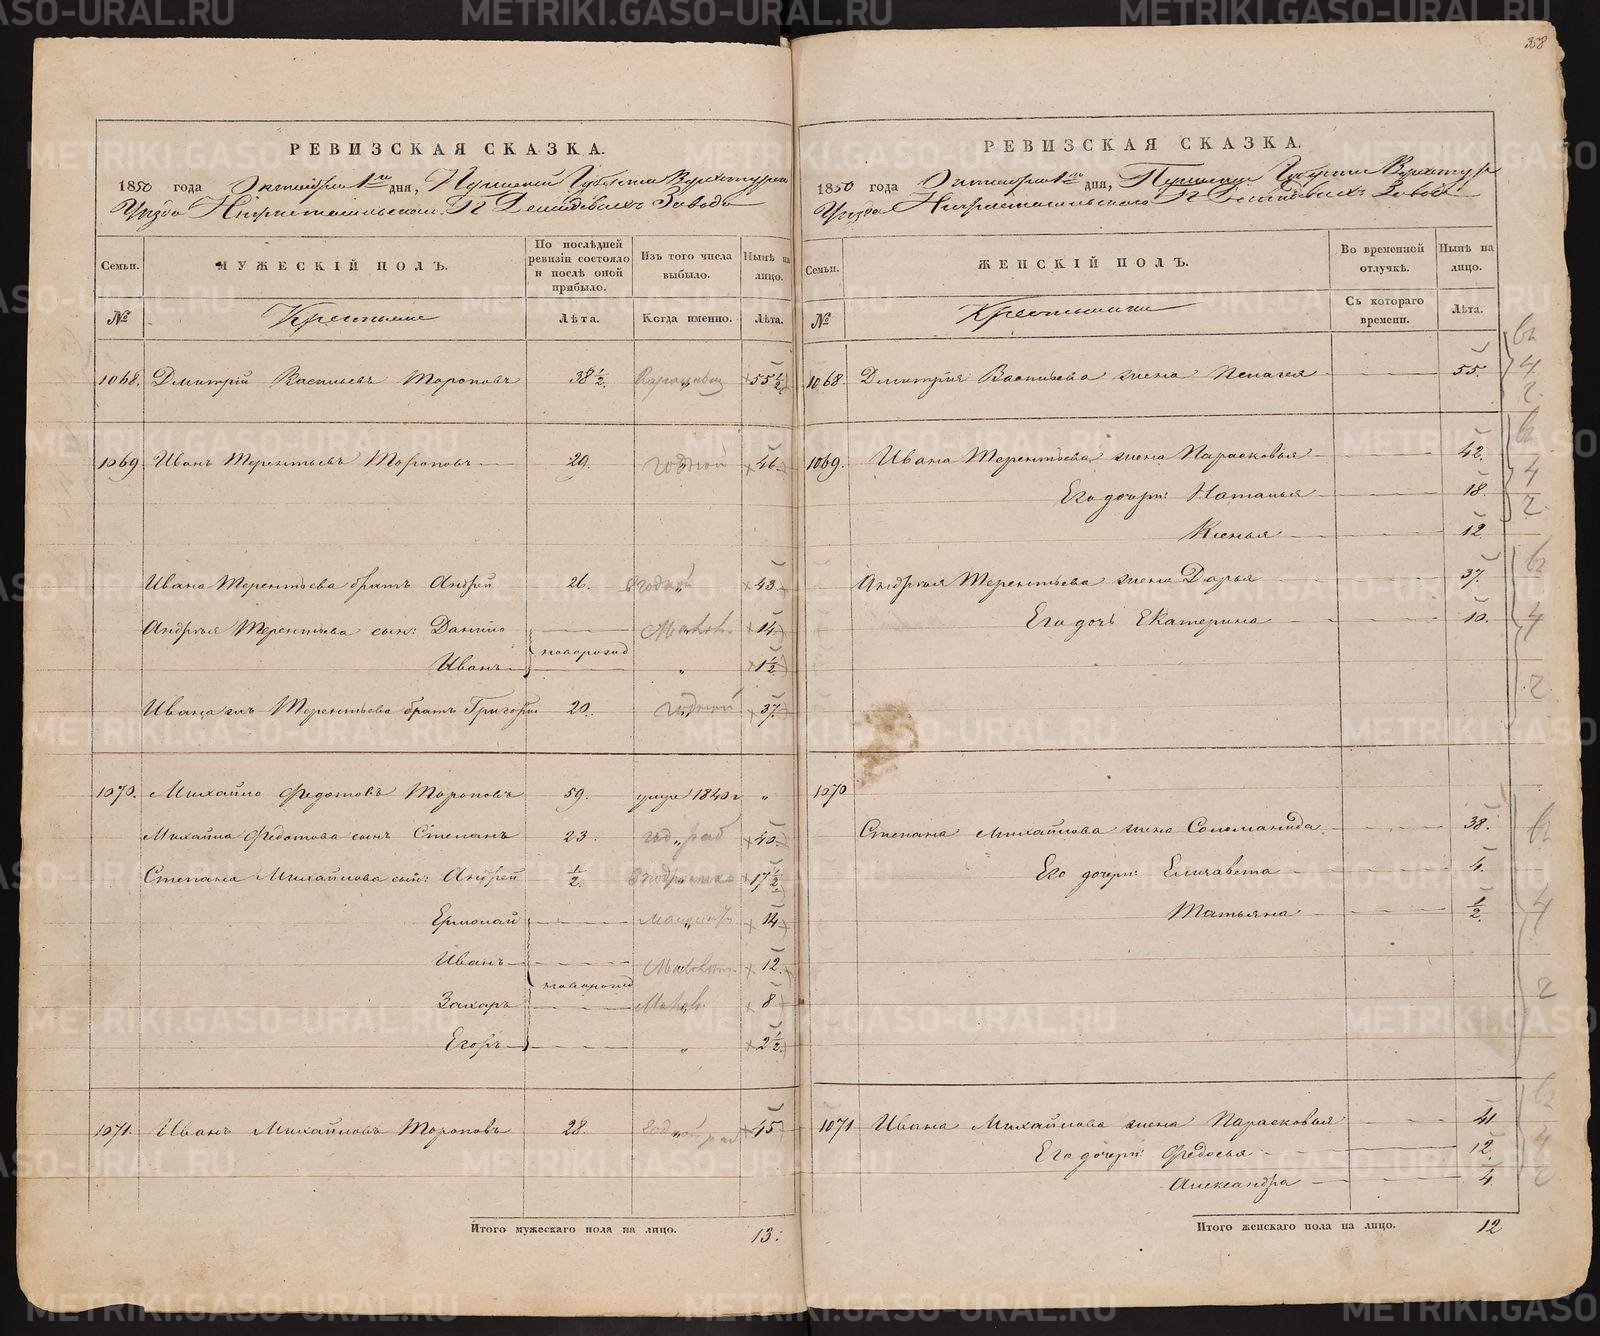 358
РЕВИЗСКАЯ СКАЗКА.
1850 года Октября 1го дня, Пермской Губернии Верхотурск
Уезда Нижнетагильскаго Гг Демидовыхъ Завода
Семьи. МУЖЕСКІЙ ПОЛЪ. По послѣдней ревизіи состояло и послѣ оной прибыло. Изъ того числа выбыло. Нынѣ на лицо.
№ Крестьяне Лѣта. Когда именно. Лѣта.
1068. Дмитрій Васильевъ Тороповъ 38 1/2. 55 1/2
1069. Иванъ Терентьевъ Тороповъ 29. годной 46
Ивана Терентьева братъ Андрей 26. годной 43
Андрея Терентьева сын: Данило 14
новорожд
Иванъ „ 1 1/2
Ивана Терентьева братъ Григорій 20. годной 37
1070. Михайло Федотовъ Тороповъ 59. умре 1840 г „
Михайла Федотова сынъ Степанъ 23. год раб 40
Степана Михайлова сын: Андрей 1/2. 17 1/2
Ермолай 14
Иванъ 12
новорожд
Захаръ 8
Егоръ „ 2 1/2
1071. Иванъ Михайловъ Тороповъ 28. годной раб 45
Итого мужескаго пола на лицо. 13.
РЕВИЗСКАЯ СКАЗКА.
1850 года Октября 1го дня, Пермской Губерніи Верхотур
Уезда Нижнетагильскаго Гг Демидовыхъ Завода
Семьи. ЖЕНСКІЙ ПОЛЪ. Во временной отлучкѣ. Нынѣ на лицо.
№ Крестьянки Съ котораго времени. Лѣта.
1068. Дмитрія Васильева жена Пелагея 55.
1069. Ивана Терентьева жена Парасковья 42.
Его дочери: Наталья 18.
Ксенья 12.
Андрея Терентьева жена Дарья 37.
Его дочь Екатерина 10.
1070
Степана Михайлова жена Соломанида 38.
Его дочери: Елизавета 4.
Татьяна 1/2.
1071 Ивана Михайлова жена Парасковья 41
Его дочери: Федосья 12.
Александра 4.
Итого женскаго пола на лицо. 12
METRIKI.GASO-URAL.RU